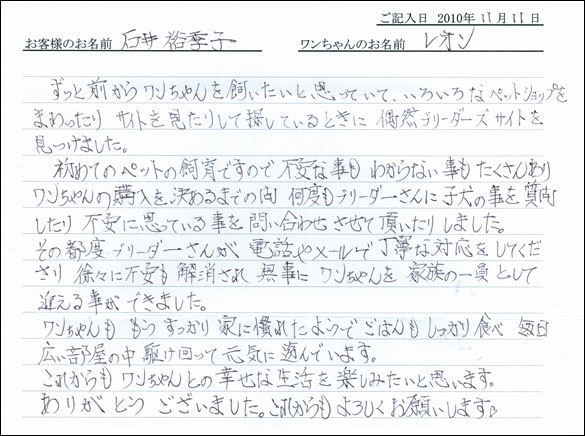 ご記入日 2010年 11月 11日
お客様のお名前 石井 裕季子 ワンちゃんのお名前 レオン
ずっと前から ワンちゃんを飼いたいと思っていて、いろいろなペットショップを
まわったり サイトを見たりして探しているときに 偶然ブリーダーズサイトを
見つけました。
初めてのペットの飼育ですので 不安な事も わからない事も たくさんあり
ワンちゃんの購入を決めるまでの間 何度もブリーダーさんに子犬の事を質問
したり 不安に思っている事を 問い合わせさせて頂いたりしました。
その都度ブリーダーさんが 電話やメールで 丁寧な対応をしてくだ
さり 徐々に不安も 解消され 無事に ワンちゃんを 家族の一員として
迎える事ができました。
ワンちゃんも もう すっかり 家に慣れたようで ごはんも しっかり食べ 毎日
広い部屋の中 駆け回って 元気に 遊んでいます。
これからも ワンちゃんとの 幸せな生活を 楽しみたいと思います。
ありがとう ございました。これからも よろしく お願いします。